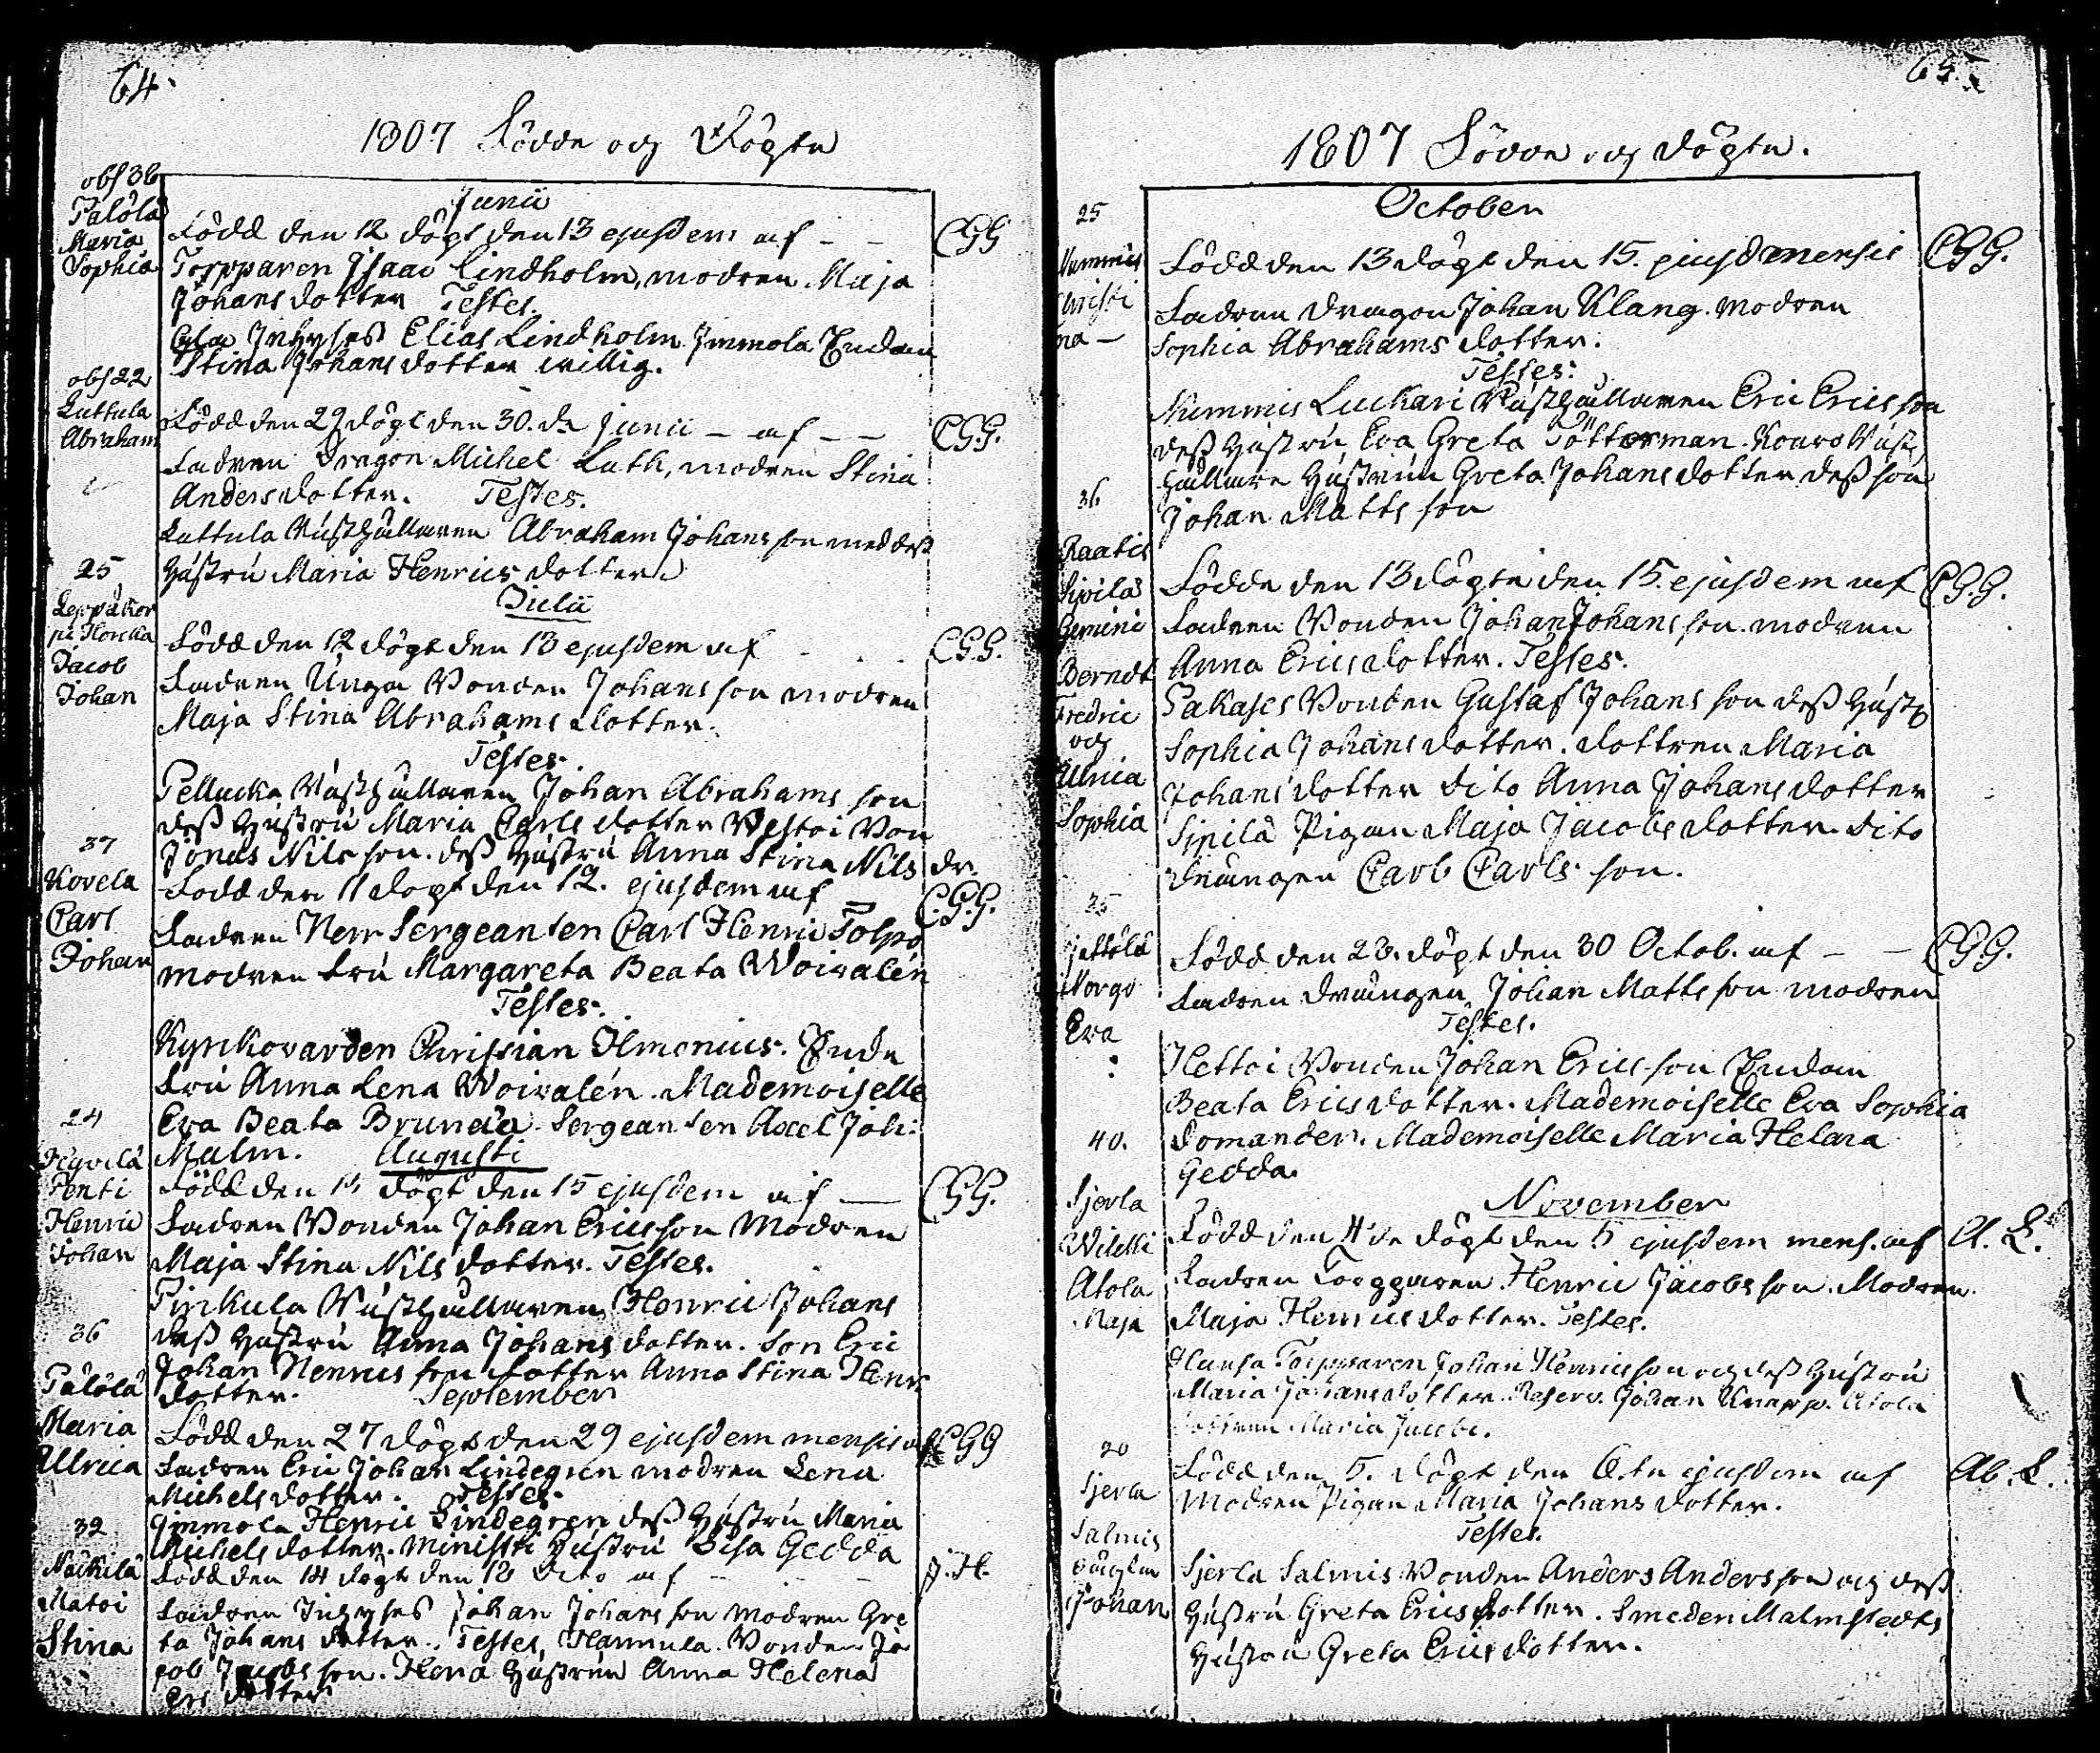 64.
1807 Födde och Döpte
obs 36
Palölä
Maria
Sophia
Junii
Född den 12 döpt den 13 ejusdem af - -
CGG
Torpparen Isaac Lindholm, modren Maja
Johans dotter Testes.
Inhyses Elias Lindholm Immola Enkan
Stina Johans dotter willig.
obs 22
Luttula
Abraham
Född den 29 döpt den 30. de Junii - af - -
C.G.G.
Fadren Dragon Michel Luth, modren Stina
Anders dotter. Testes.
Luttula Rusthållaren Abraham Johans son med dess
hustru Maria Henrics dotter
25
Jacob
Johan
Julii
Född den 12 döpt den 13 ejusdem af - - -
C.G.G.
Fadren Unga Bonden Johans son modren
Maja Stina Abrahams dotter.
Testes.
Pellucka Rusthållaren Johan Abrahams son
dess hustru Maria Carls dotter Westoi Bon
Jonas Nils son. dess hustru Anna Stina Nils dr.
37
Kovela
Carl
Johan
Född den 11 döpt den 12. ejusdem af
C.G.G.
Fadren Herr Sergeanten Carl Henric Tolpo
modren Fru Margareta Beata Woivalén
Testes.
Kyrkovarden Christian Ilmonius. Enke
Fru Anna Lena Woivalén. Mademoiselle
Eva Beata Brunda. Sergeanten Axel Joh:
Malm.
24
Hyvilä
Penti
Henric
Johan
Augusti
Född den döpt den 15 ejusdem af -
CGG.
Fadren Bonden Johan Ericsson Modren
Maja Stina Nils dotter. Testes.
Pyrkula Rusthållaren Henric Johans
dess hustru Anna Johans dotter. Son Eric
Johan Henrics son dotter Anna Stina Henr.
dotter.
36
Palölä
Maria
Ullrica
September
Född den 27 döpt den 29 ejusdem mensis af
CGG
Fadren Eric Johan Lindegren modren Lena
Michels dotter. Testes.
Immola Henric Lindegren dess hustru Maria
Michels dotter. Ministri hustru Lisa Gedda
32
Näckilä
Matoi
Stina
Född den 14 döpt den 18 dito af - - -
J.H.
Fadren Inhyses Johan Johans son modren Gre
ta Johans dotter. Testes, Hannula Bonden Ja
cob Jacobs son. Hena hustrun Anna Helena
Ers dotter
65.
1807 Födde och döpte.
25
Nummis
Christi
na -
October
Född den 13 döpt den 15. ejusd mensis
CGG.
Fadren Dragon Johan Klang. modren
Sophia Abrahams dotter.
Testes.
Nummis Luckari Rusthållaren Eric Ericsson
dess hustru Eva Greta Pötterman. Kouro Rust
hållare hustrun Greta Johans dotter dess son
Johan Matts son
36
Raatis
Sipilä
Gemini
Berndt
Fredric
och
Ulrica
Sophia
Födde den 13 döpte den 15. ejusdem af
C.G.G.
Fadren Bonden Johan Johans son. modren
Anna Erics dotter. Testes.
Sakases Bonden Gustaf Johans son dess hustr.
Sophia Johans dotter. dottren Maria
Johans dotter dito Anna Johans dotter
Sipilä Pigan Maja Jacobs dotter. dito
Drängen Carl Carls son.
25
Norgo
Eva
Född den 28. döpt den 30 Octob. af - -
CGG.
Fadren drängen Johan Matts son modren
Testes.
Hettoi Bonden Johan Erics son Enkan
Beata Erics dotter. Mademoiselle Eva Sophia
Domander. Mademoiselle Maria Helena
Gedda.
40.
Sjerla
Wiletti
Atola
Maja
November
Född den 4de döpt den 5 ejusdem mens. af
A. L.
Fadren Torpparen Henric Jacobs son. Modren
Maja Henrics dotter. Testes.
Torpparen Johan Henricsson och dess hustru
Maria Johans dotter. Reserv. Johan Knapp. Atola
dottren Maria Jacobs.
20
Sjerla
Salmis
oägta
Johan
Född den 5. döpt den 6te ejusdem af
Ab. L.
Modren Pigan Maria Johans dotter.
Testes.
Sjerla Salmis Bonden Anders Anders son och dess
hustru Greta Erics dotter. Smeden Malmstedts
hustru Greta Erics dotter.